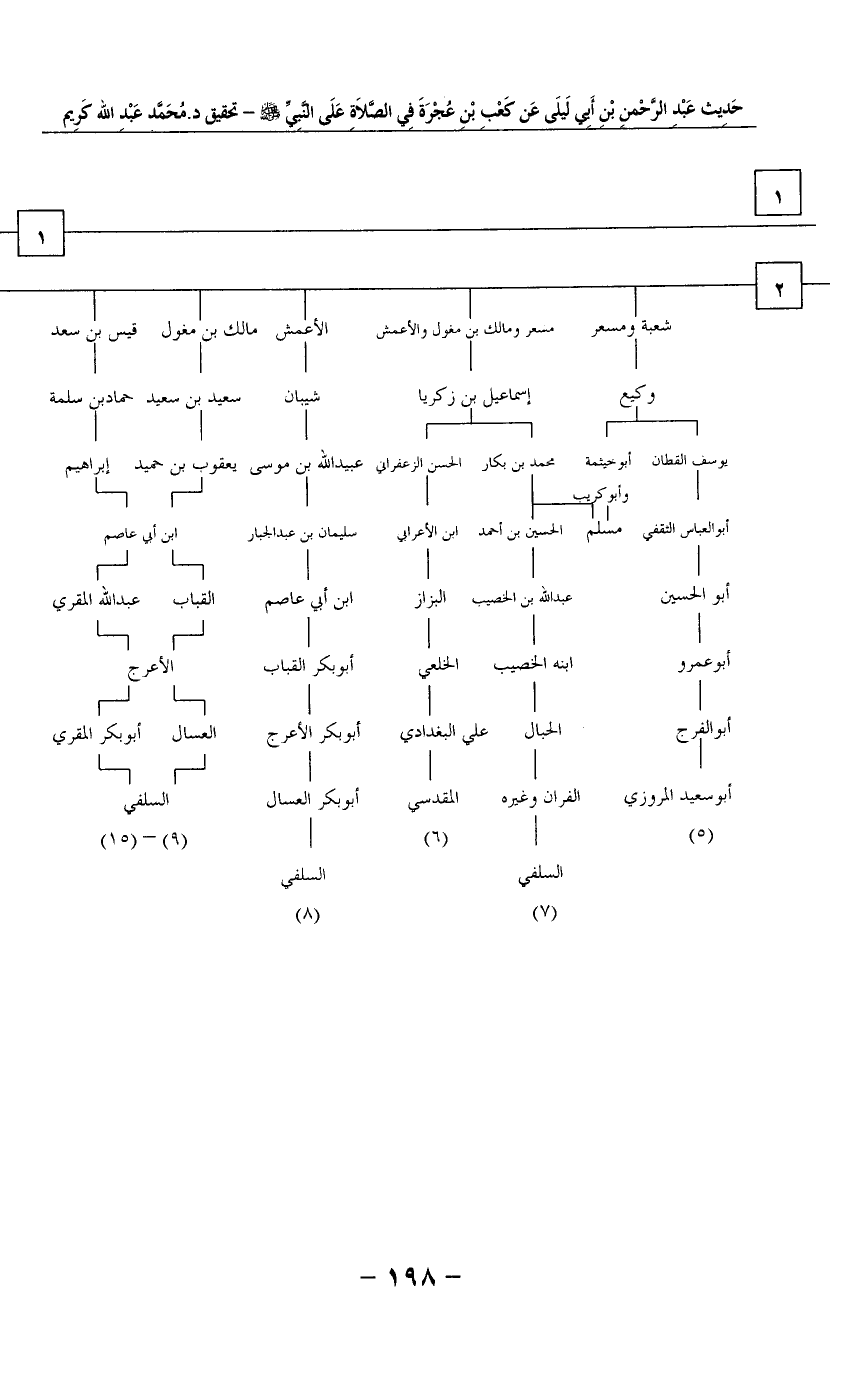 حَدِيث عَبْدِ الرَّحْمنِ بْنِ أَبِي لَيلَى عَن كَعْبِ بْنِ عُجْرَةَ فِي الصَّلاَةِ عَلَى النَّبِيِّ ﷺ – تحقيق د.مُحَمَّد عَبْدِ الله كَرِيم
١
١
٢
شعبة ومسعر مسعر ومالك بن مغول والأعمش الأعمش مالك بن مغول قيس بن سعد
وكيع إسماعيل بن زكريا شيبان سعيد بن سعيد حمادبن سلمة
يوسف القطان أبوخيثمة محمد بن بكار الحسن الزعفراني عبيدالله بن موسى يعقوب بن حميد إبراهيم
وأبوكريب
أبوالعباس الثقفي مسلم الحسين بن أحمد ابن الأعرابي سليمان بن عبدالجبار ابن أبي عاصم
أبو الحسين عبدالله بن الخصيب البزاز ابن أبي عاصم القباب عبدالله المقري
أبوعمرو ابنه الخصيب الخلعي أبوبكر القباب الأعرج
أبوالفرج الحبال علي البغدادي أبوبكر الأعرج العسال أبوبكر المقري
أبوسعيد المروزي الفران وغيره المقدسي أبوبكر العسال السلفي
(٥) (٦) (٩) – (١٥)
السلفي السلفي
(٧) (٨)
– ١٩٨ –